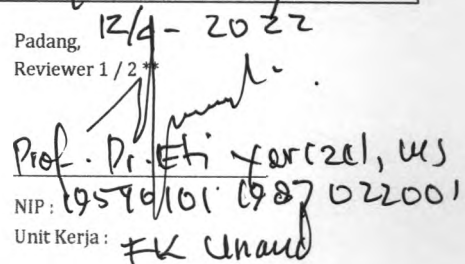 Padang, 12/4 - 2022
Reviewer 1 / 2 **
Prof. Dr. Eti Yerizel, MS
NIP : 19590101 1987 022001
Unit Kerja : FK Unand